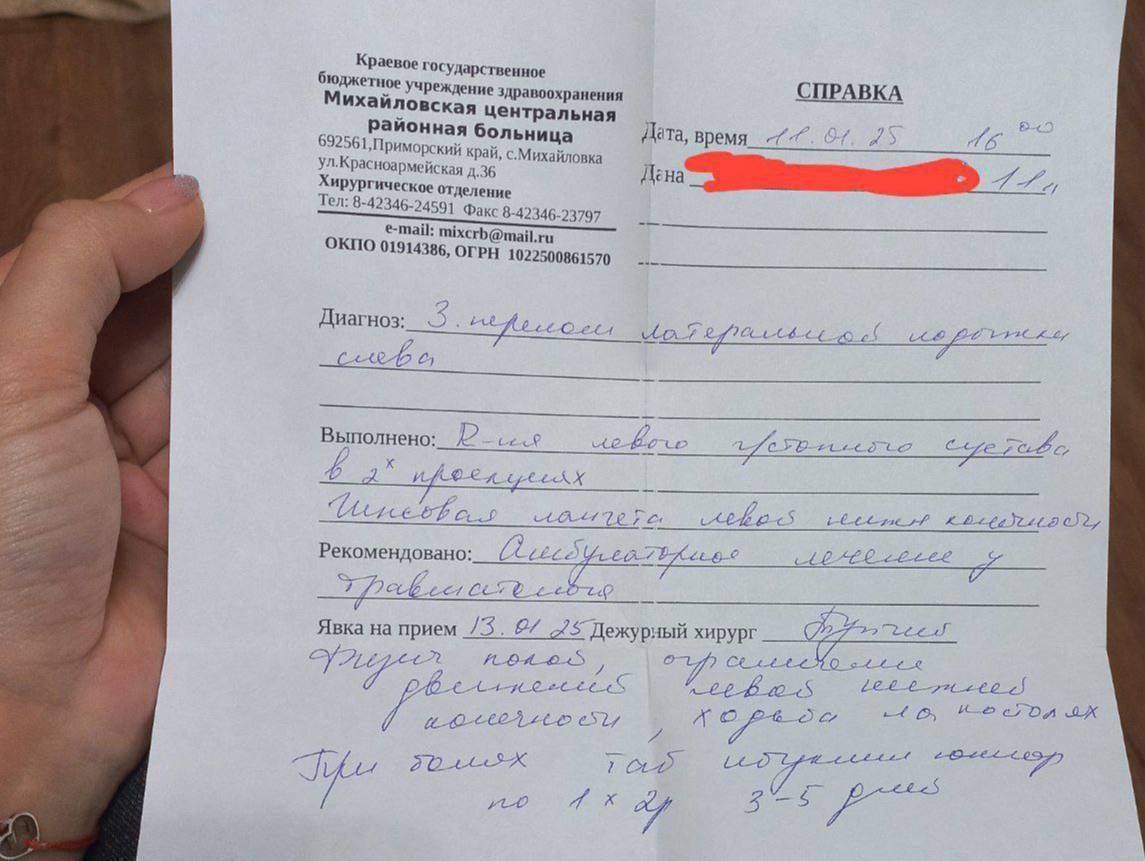 Краевое государственное
бюджетное учреждение здравоохранения
Михайловская центральная
районная больница
692561,Приморский край, с.Михайловка
ул.Красноармейская д.36
Хирургическое отделение
Тел: 8-42346-24591 Факс 8-42346-23797
e-mail: mixcrb@mail.ru
ОКПО 01914386, ОГРН 1022500861570
СПРАВКА
Дата, время 11.01.25 16 00
Дана 11л
Диагноз: З. перелом латеральной лодыжки
слева
Выполнено: R-ия левого г/стопного сустава
в 2х проекциях
Гипсовая лангета левой нижн конечности
Рекомендовано: Амбулаторное лечение у
травматолога
Явка на прием 13.01.25 Дежурный хирург
Физич покой, ограничение
движений левой нижней
конечности, ходьба на костылях
При болях таб ибуклин юниор
по 1 х 2р 3-5 дней